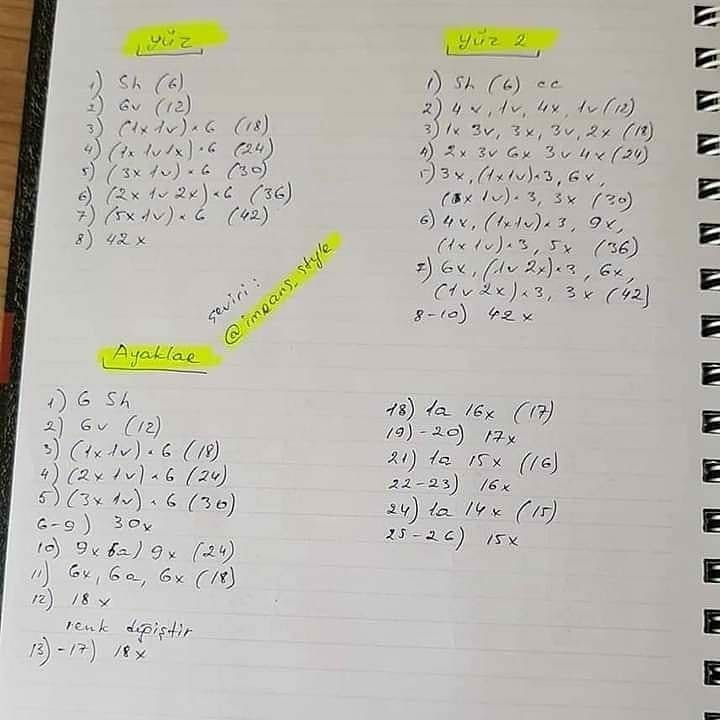 yüz
1) Sh (6)
2) 6v (12)
3) (1x 1v)×6 (18)
4) (1x 1v 1x)×6 (24)
5) (3x 1v)×6 (30)
6) (2x 1v 2x)×6 (36)
7) (5x 1v)×6 (42)
8) 42x
yüz 2
1) Sh (6) cc
2) 4x, 1v, 4x, 1v (12)
3) 1x 3v, 3x, 3v, 2x (18)
4) 2x 3v 6x 3v 4x (24)
5) 3x, (1x 1v)×3, 6x,
(1x 1v)×3, 3x (30)
6) 4x, (1x 1v)×3, 9x,
(1x 1v)×3, 5x (36)
7) 6x, (1v 2x)×3, 6x,
(1v 2x)×3, 3x (42)
8-10) 42x
çeviri:
@impans_style
Ayaklar
1) 6 Sh
2) 6v (12)
3) (1x 1v)×6 (18)
4) (2x 1v)×6 (24)
5) (3x 1v)×6 (30)
6-9) 30x
10) 9x 6a) 9x (24)
11) 6x, 6a, 6x (18)
12) 18x
renk değiştir
13)-17) 18x
18) 1a 16x (17)
19)-20) 17x
21) 1a 15x (16)
22-23) 16x
24) 1a 14x (15)
25-26) 15x